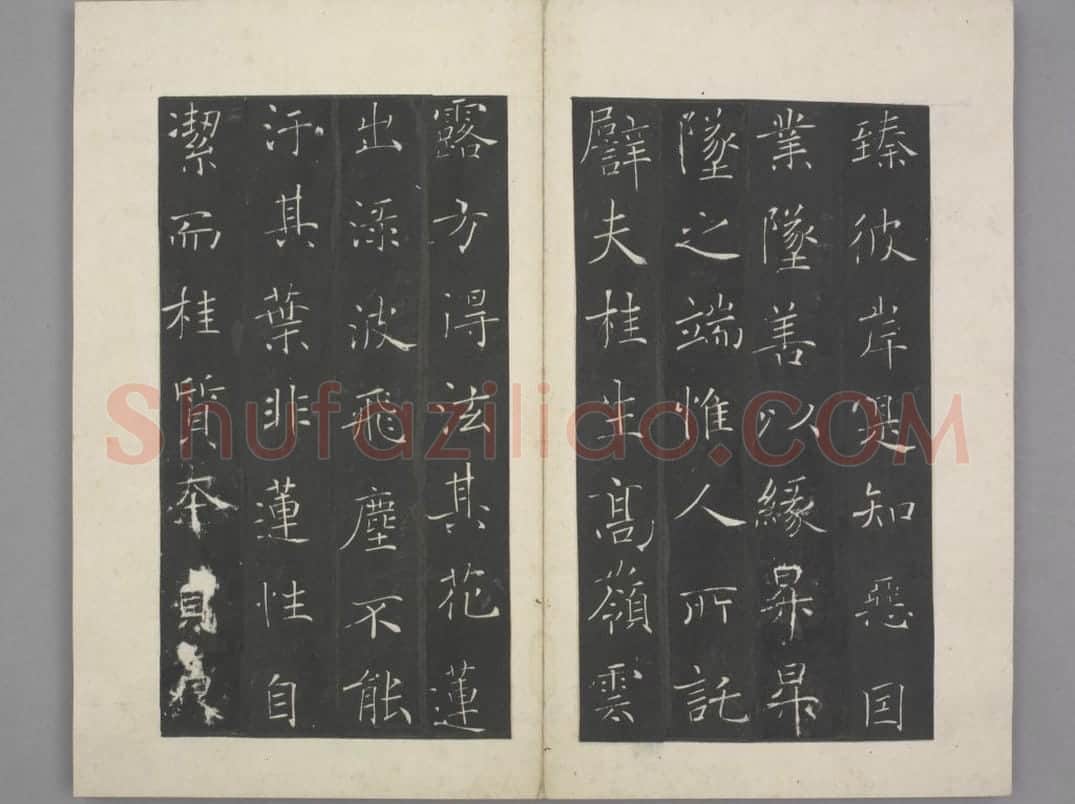 臻彼岸是知惡因
業墜善以緣昇昇
墜之端惟人所託
譬夫桂生高嶺雲
露方得泫其花蓮
出淥波飛塵不能
汙其葉非蓮性自
潔而桂質本貞良
Shufaziliao.COM